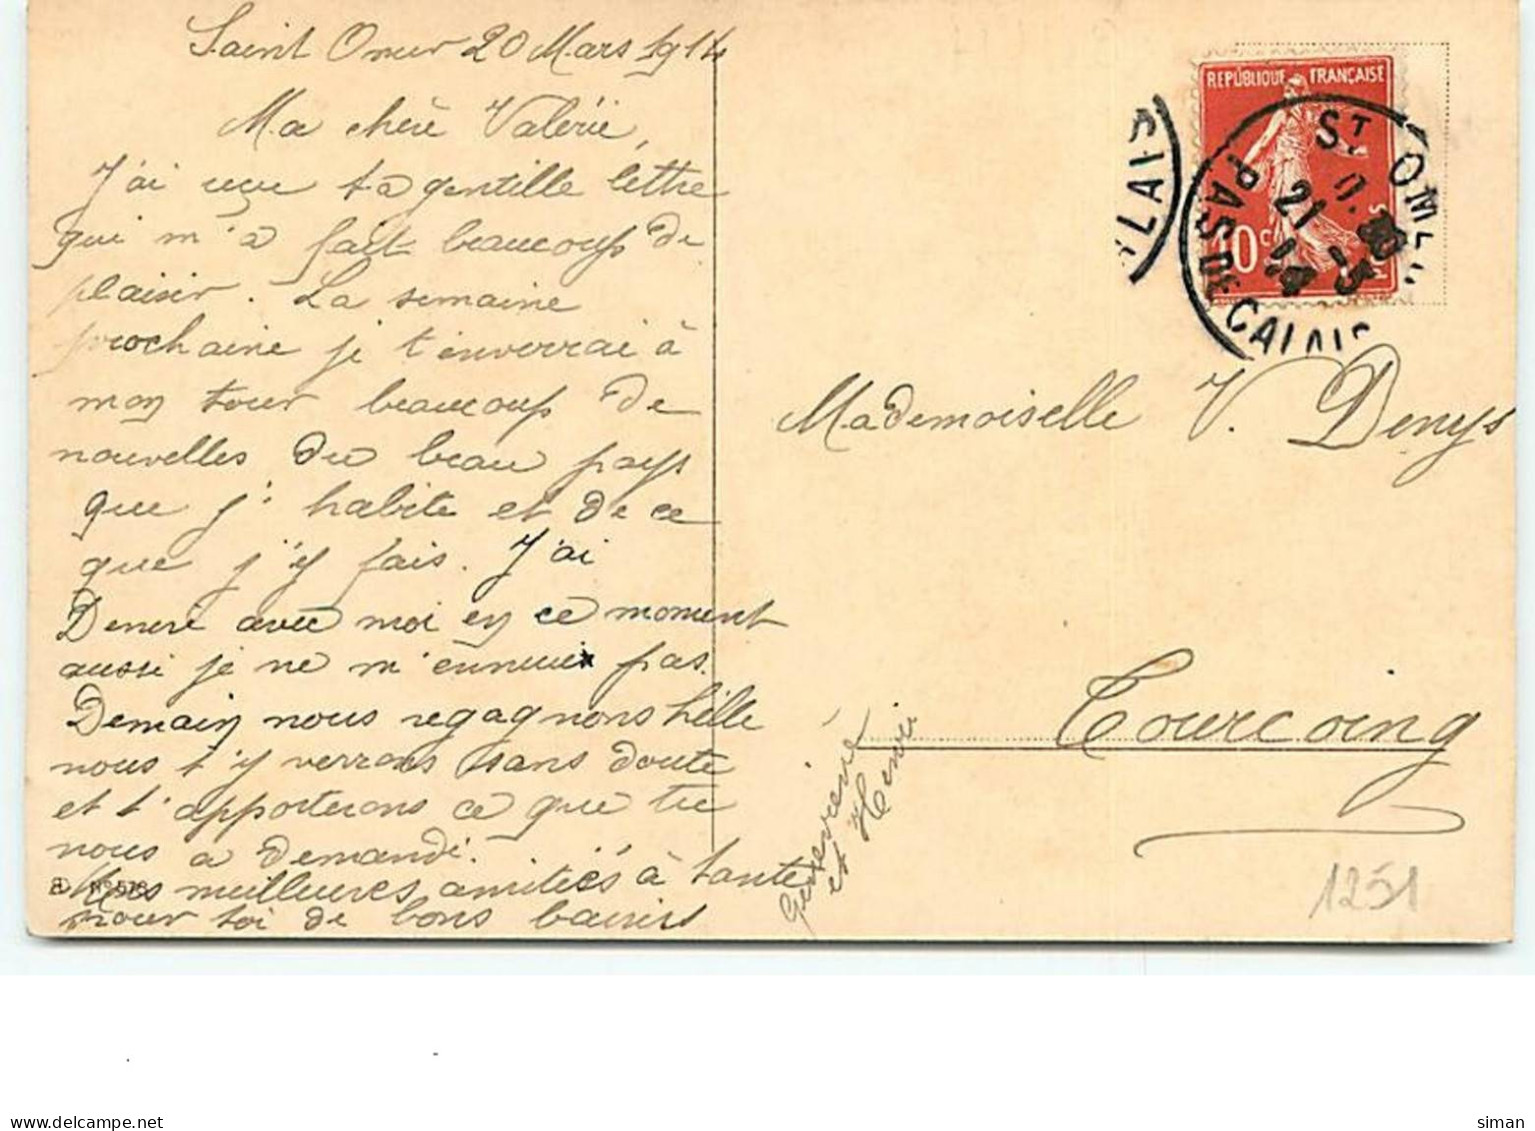 Saint Omer 20 Mars 1914
Ma chère Valérie,
J'ai reçu ta gentille lettre
qui m'a fait beaucoup de
plaisir. La semaine
prochaine je t'enverrai à
mon tour beaucoup de
nouvelles du beau pays
que j' habite et de ce
que j'y fais. J'ai
avec moi en ce moment
aussi je ne m'ennuie pas.
Demain nous regagnons Lille
nous t'y verrons sans doute
et t'apporterons ce que tu
nous a demandé.
Mes meilleures amitiés à tante
pour toi de bons baisers
Geneviève
et Henri
N° 578
RÉPUBLIQUE FRANÇAISE
10c
POSTES
ST OMER
21
PAS DE CALAIS
LAIS
Mademoiselle V. Denys
Tourcoing
1251
www.delcampe.net
siman